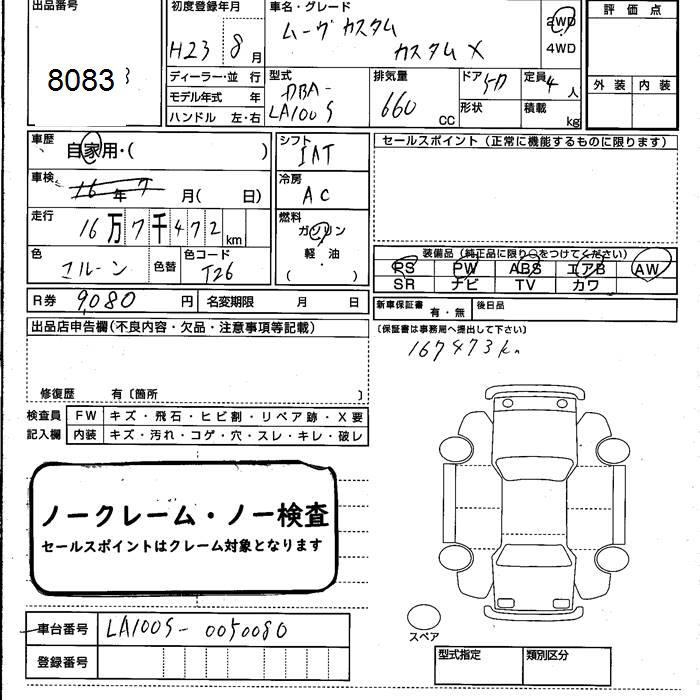 出品番号
8083
3
初度登録年月
H23 8月
ディーラー・並 行
モデル年式 年
ハンドル 左・右
車名・グレード
ムーヴ カスタム
カスタム X
2WD
4WD
型式
DBA-
LA100S
排気量
660
CC
ドア
5D
形状
定員
4
人
積載
kg
評 価 点
外 装
内 装
車歴
自家用・( )
車検
16年7月( 日)
走行
16万7千472
km
色
色替
色コード
T26
シフト
IAT
冷房
AC
燃料
ガソリン
軽 油
( )
セールスポイント (正常に機能するものに限ります)
装備品 (純正品に限り○をつけてください)
PS PW ABS エアB AW
SR ナビ TV カワ
R券 9,080 円
名変期限 月 日
新車保証書 有・無
後日品
(保証書は事務局へ提出して下さい)
出品店申告欄(不良内容・欠品・注意事項等記載)
167473km
修復歴 有〔箇所 〕
検査員
記入欄
FW キズ・飛石・ヒビ割・リペア跡・X要
内装 キズ・汚れ・コゲ・穴・スレ・キレ・破レ
ノークレーム・ノー検査
セールスポイントはクレーム対象となります
車台番号 LA100S-0050080
登録番号
スペア
型式指定
類別区分